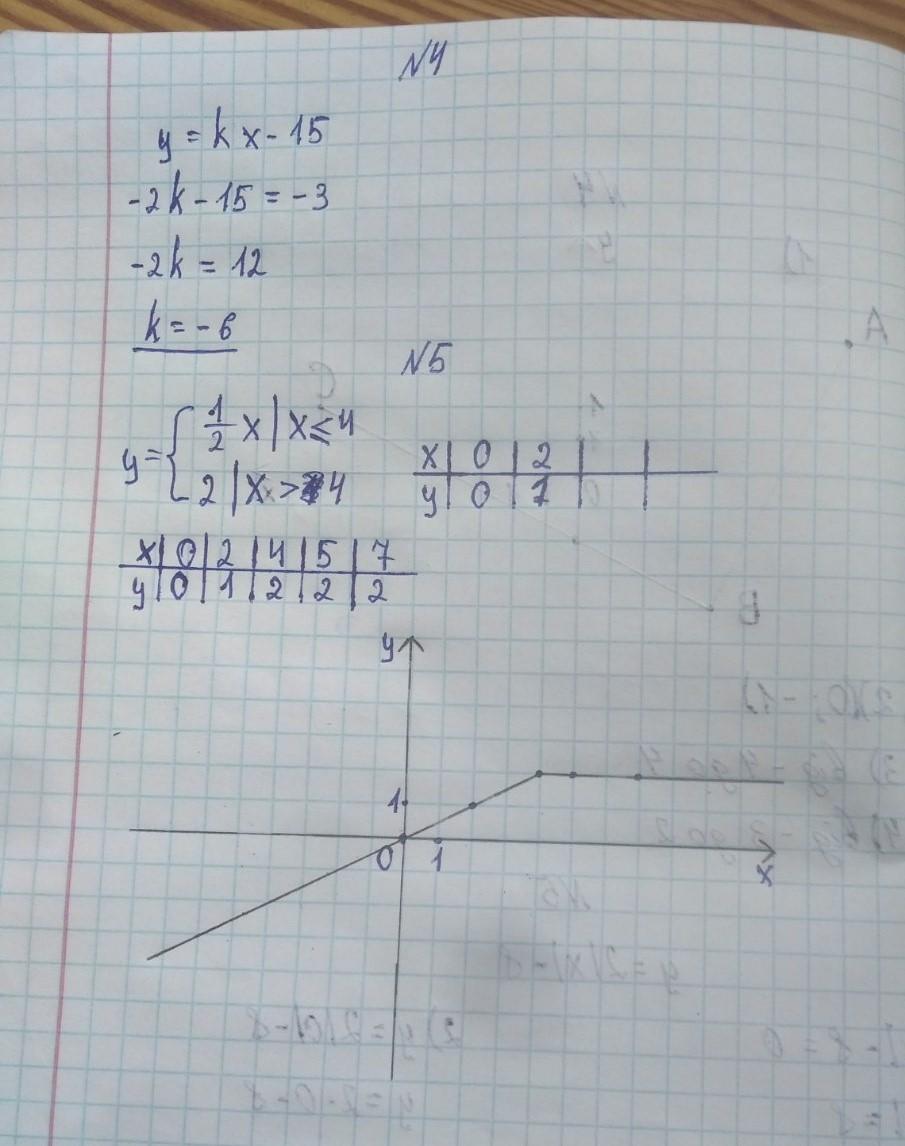 N4
y = kx - 15
-2k - 15 = -3
-2k = 12
k = -6
N5
y = { 1/2 x | x ≤ 4
2 | x > 4
x | 0 | 2 | | 
y | 0 | 1 | | 
x | 0 | 2 | 4 | 5 | 7
y | 0 | 1 | 2 | 2 | 2
y
1
0 1 x